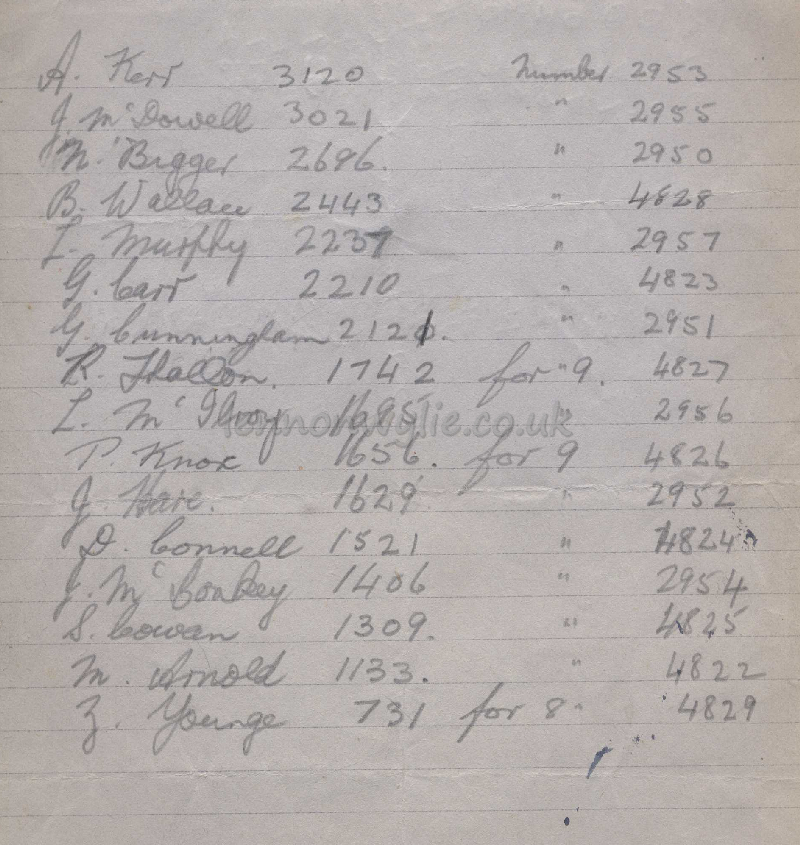 A. Kerr 3120 Number 2953
J McDowell 3021 " 2955
N. Bigger 2696. " 2950
B. Wallace 2443 " 4828
I. Murphy 2237 " 2957
G. Carr 2210 " 4823
G. Cunningham 2120. " 2951
R. Thallon. 1742 for "9. 4827
L. McIlroy 1685 " 2956
lennonwylie.co.uk
P. Knox 1656. for 9 4826
J. Hare. 1629 " 2952
D. Connell 1521 " 4824
J. McConkey 1406 " 2954
S. Cowan 1309. " 4825
M. Arnold 1133. " 4822
Z. Younge 731 for 8" 4829